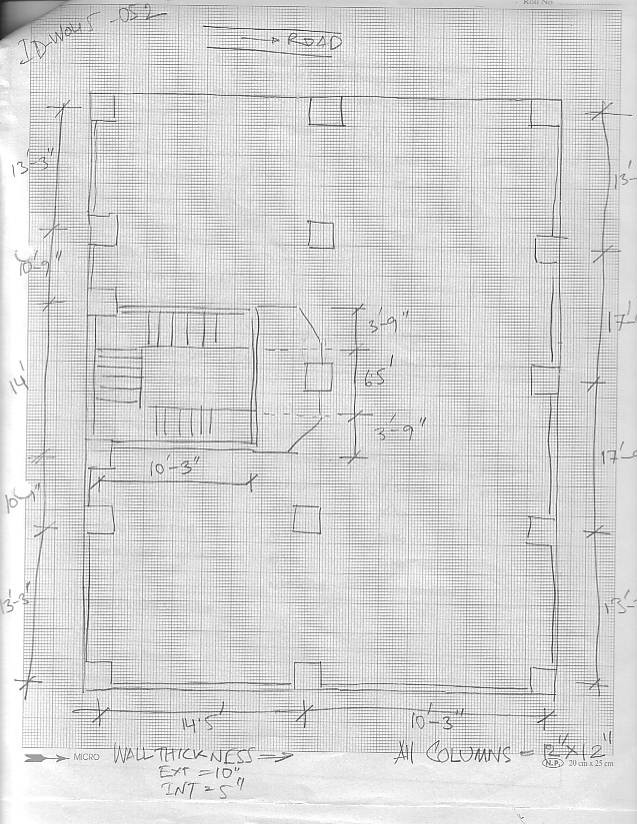 Roll No
ID-W045-052
→ ROAD
13'-3"
13'-
10'-9"
3'-9"
17'
6.5'
14'
3'-9"
17'-
10'-3"
13'-3"
13'-
14'5'
10'-3"
MICRO
WALL THICKNESS →
EXT = 10"
INT = 5"
All COLUMNS = 12"X12"
N.P. 20 cm x 25 cm